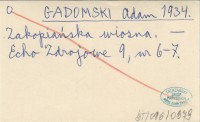 GADOMSKI Adam 1934.
Zakopiańska wiosna. —
Echo Zdrojowe 9, nr 6-7.